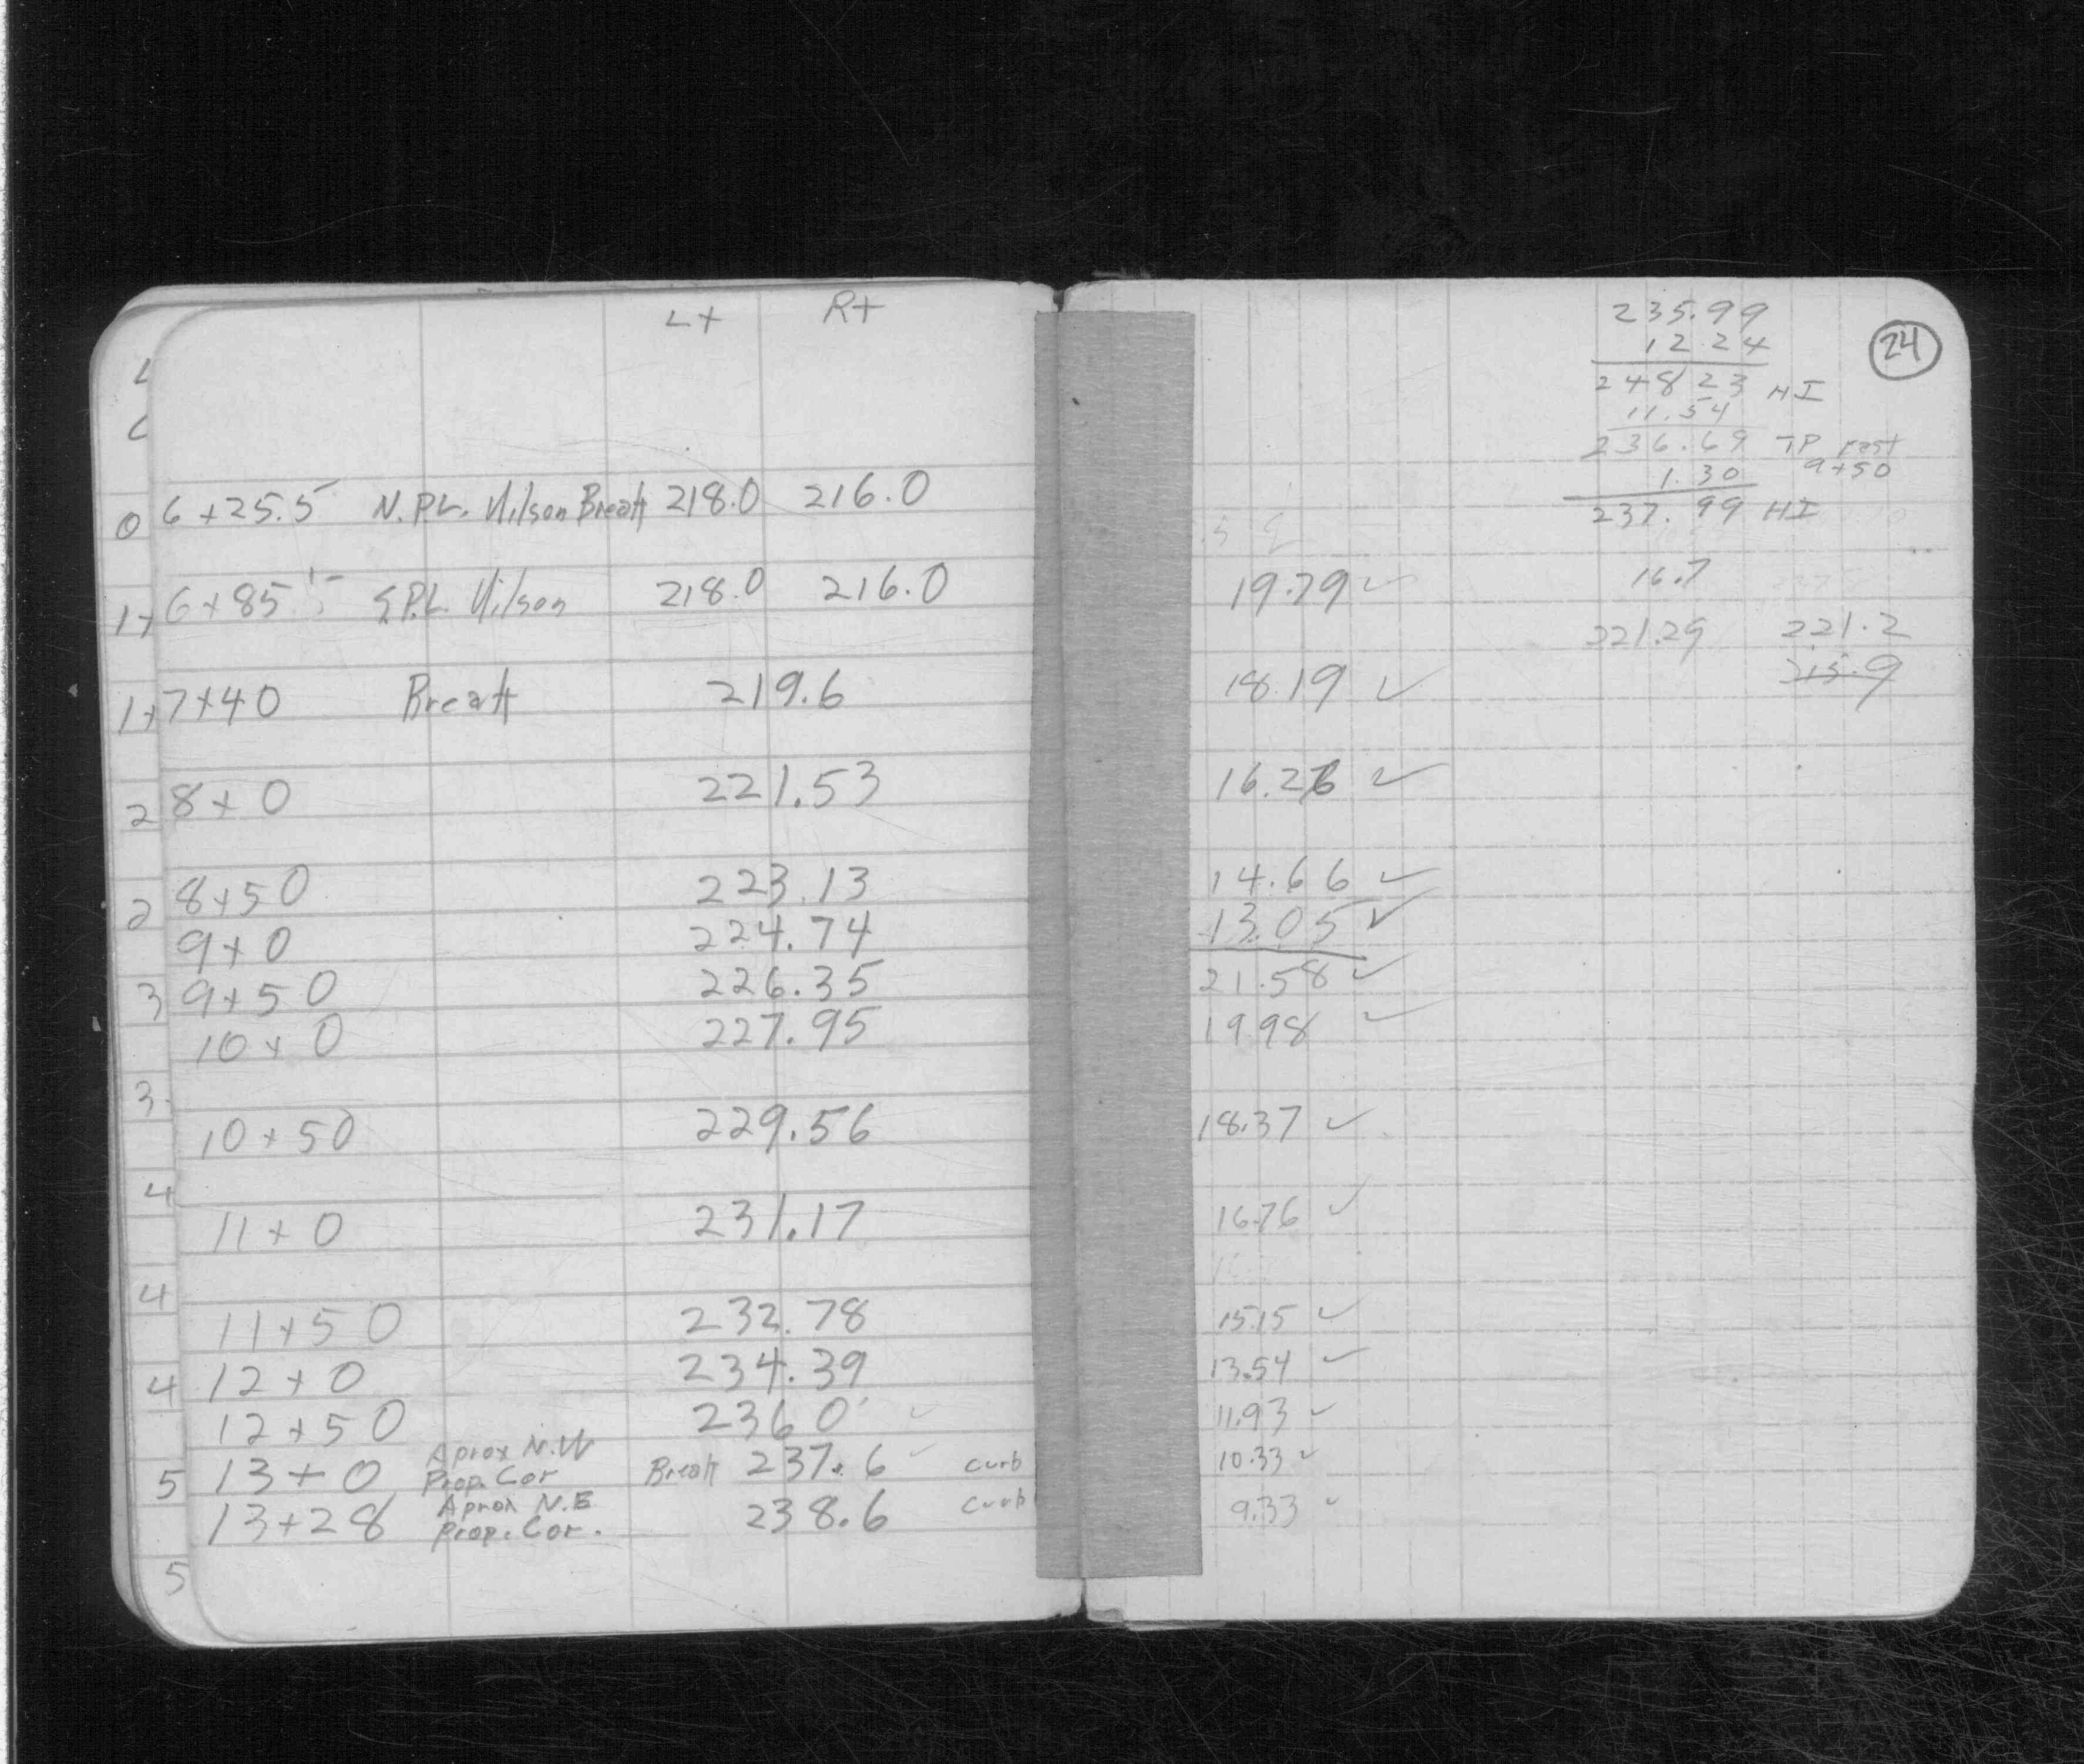 Lt Rt
6+25.5 N.P.L. Wilson Break 218.0 216.0
6+85.5 S.P.L. Wilson 218.0 216.0
7+40 Break 219.6
8+0 221.53
8+50 223.13
9+0 224.74
9+50 226.35
10+0 227.95
10+50 229.56
11+0 231.17
11+50 232.78
12+0 234.39
12+50 236.0
Aprox N.W
13+0 Prop. Cor Break 237.6 curb
Aprox N.E
13+28 Prop. Cor. 238.6 curb
0
1+
1+
2
2
3
3
4
4
4
5
5
24
235.99
12.24
248.23 HI
11.54
236.69 TP East
1.30 9+50
237.99 HI
16.7
221.29 221.2
215.9
19.79 ✓
18.19 ✓
16.26 ✓
14.66 ✓
13.05 ✓
21.58 ✓
19.98 ✓
18.37 ✓
16.76 ✓
15.15 ✓
13.54 ✓
11.93 ✓
10.33 ✓
9.33 ✓